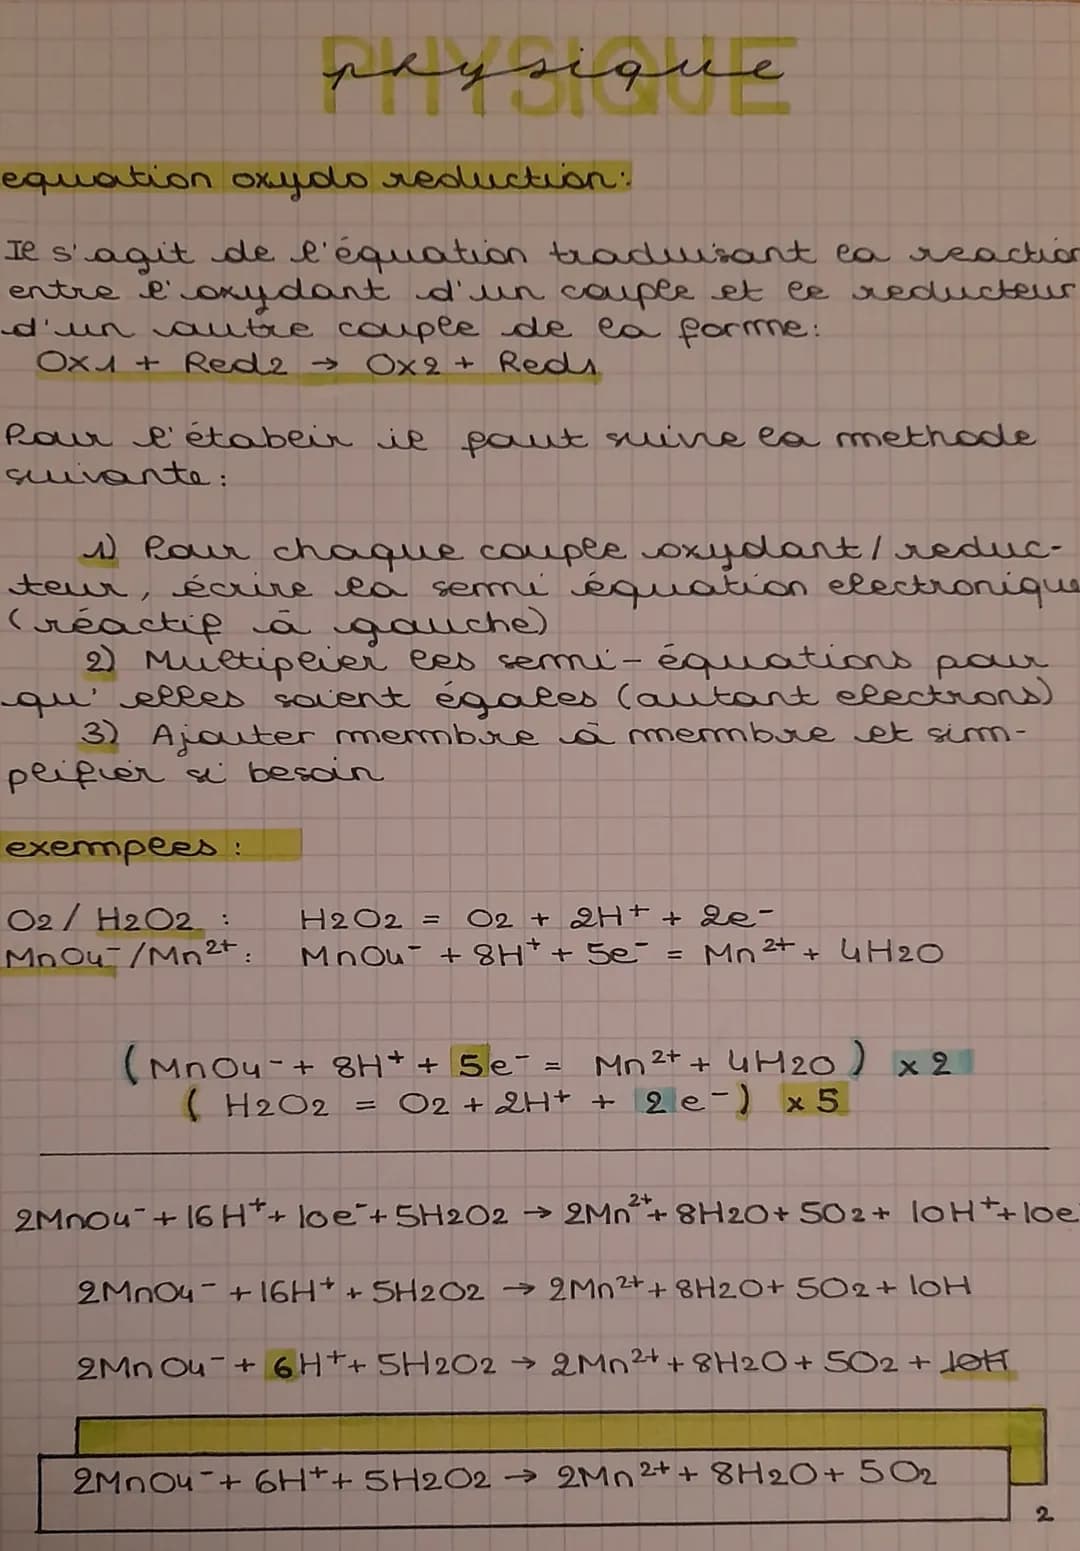 PHYSIQUE
physique
equation oxydo reduction:
Il s'agit de l'équation traduisant la reaction
entre l'oxydant d'un couple et le reducteur
d'un autre couple de la forme:
Ox1 + Red2 → Ox2 + Red1
Pour l'établir il faut suivre la methode
suivante:
1) Pour chaque couple oxydant/reduc-
teur, écrire la semi équation electronique
(réactif à gauche)
2) Multiplier les semi-équations pour
qu'elles soient égales (autant electrons)
3) Ajouter membre à membre et sim-
plifier si besoin
exemples:
O2 / H2O2 : H2O2 = O2 + 2H+ + 2e-
MnO4-/Mn2+: MnO4- + 8H+ + 5e- = Mn2+ + 4H2O
(MnO4- + 8H+ + 5e- = Mn2+ + 4H2O) x2
( H2O2 = O2 + 2H+ + 2e-) x5
2MnO4- + 16H+ + 10e- + 5H2O2 → 2Mn2+ + 8H2O + 5O2 + 10H+ + 10e-
2MnO4- + 16H+ + 5H2O2 → 2Mn2+ + 8H2O + 5O2 + 10H
2MnO4- + 6H+ + 5H2O2 → 2Mn2+ + 8H2O + 5O2 + 10H
2MnO4- + 6H+ + 5H2O2 → 2Mn2+ + 8H2O + 5O2
2